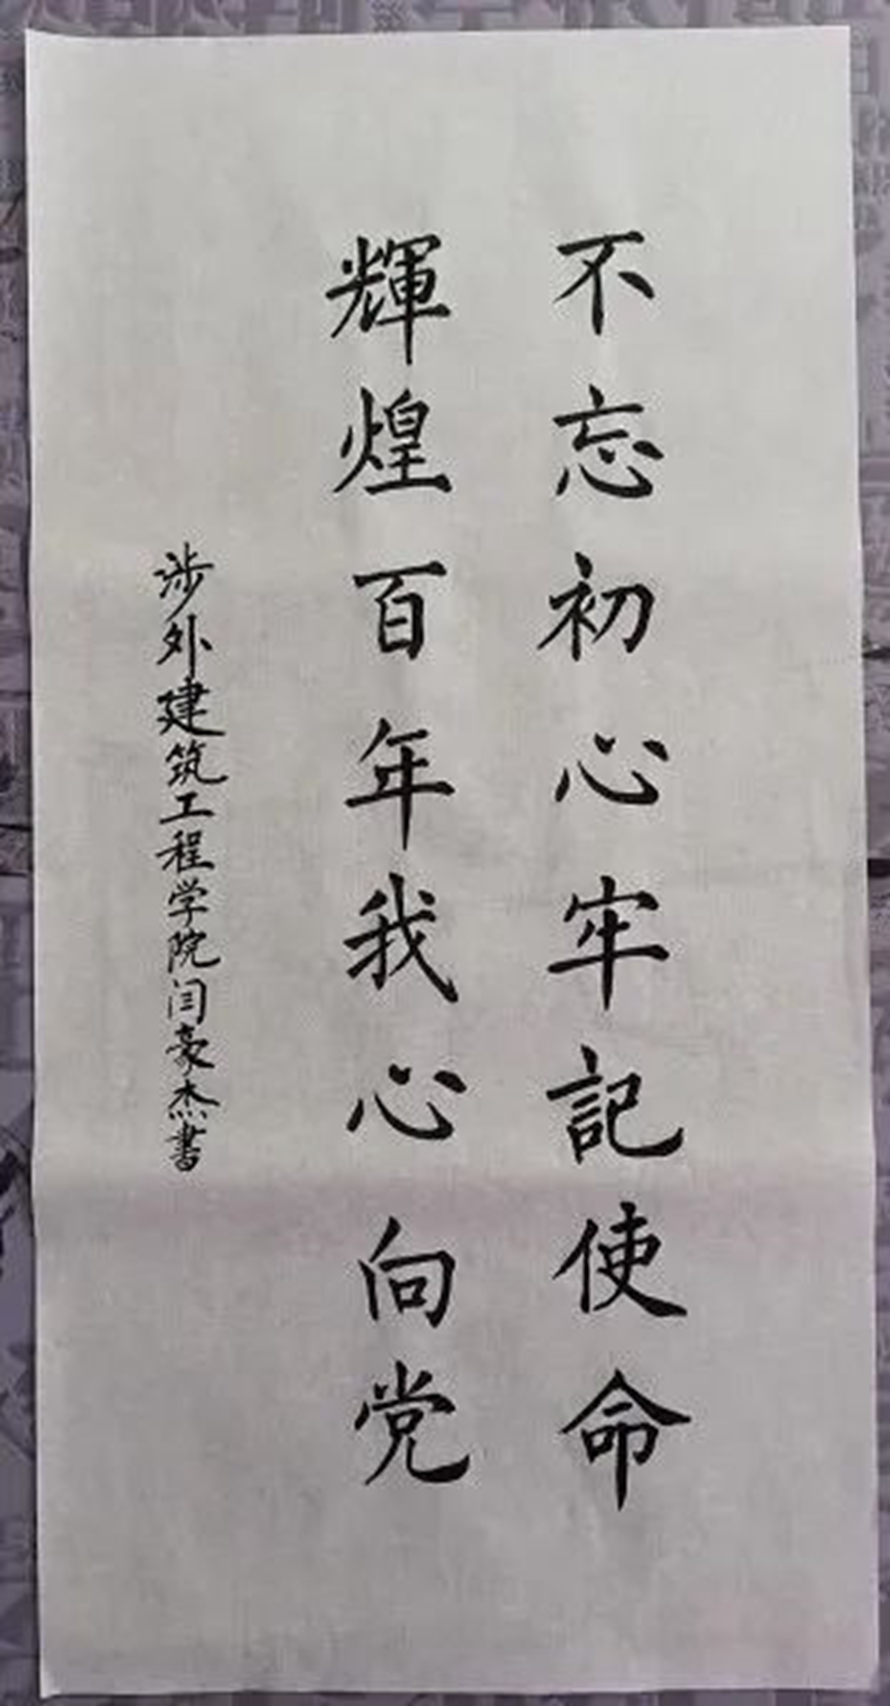 不忘初心牢記使命
輝煌百年我心向党
涉外建筑工程学院闫豪杰書